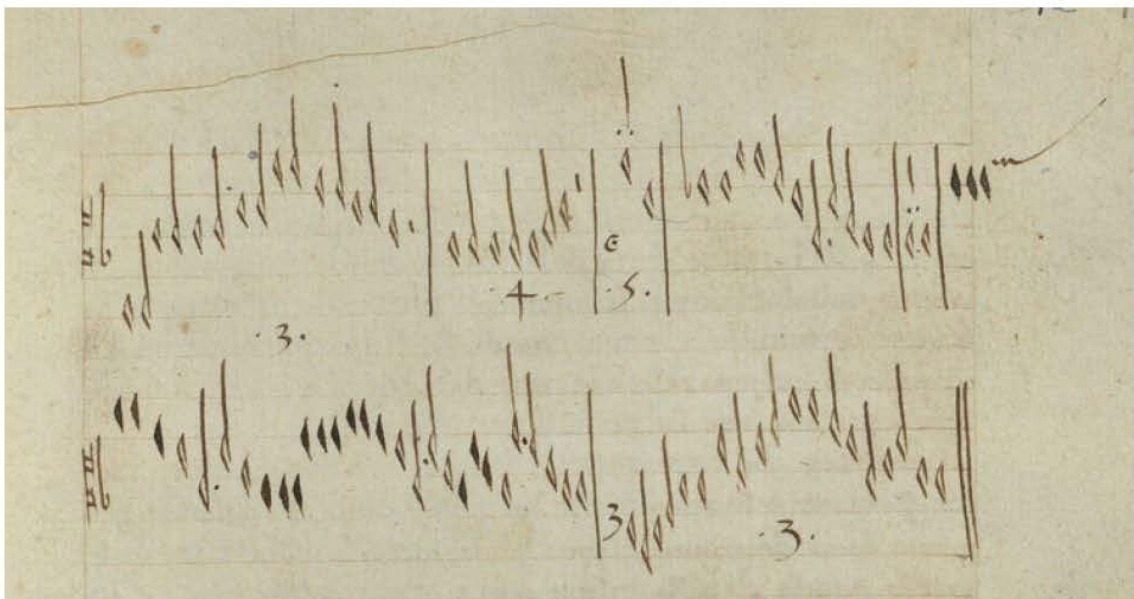 .3.
.4.
.5.
3
.3.